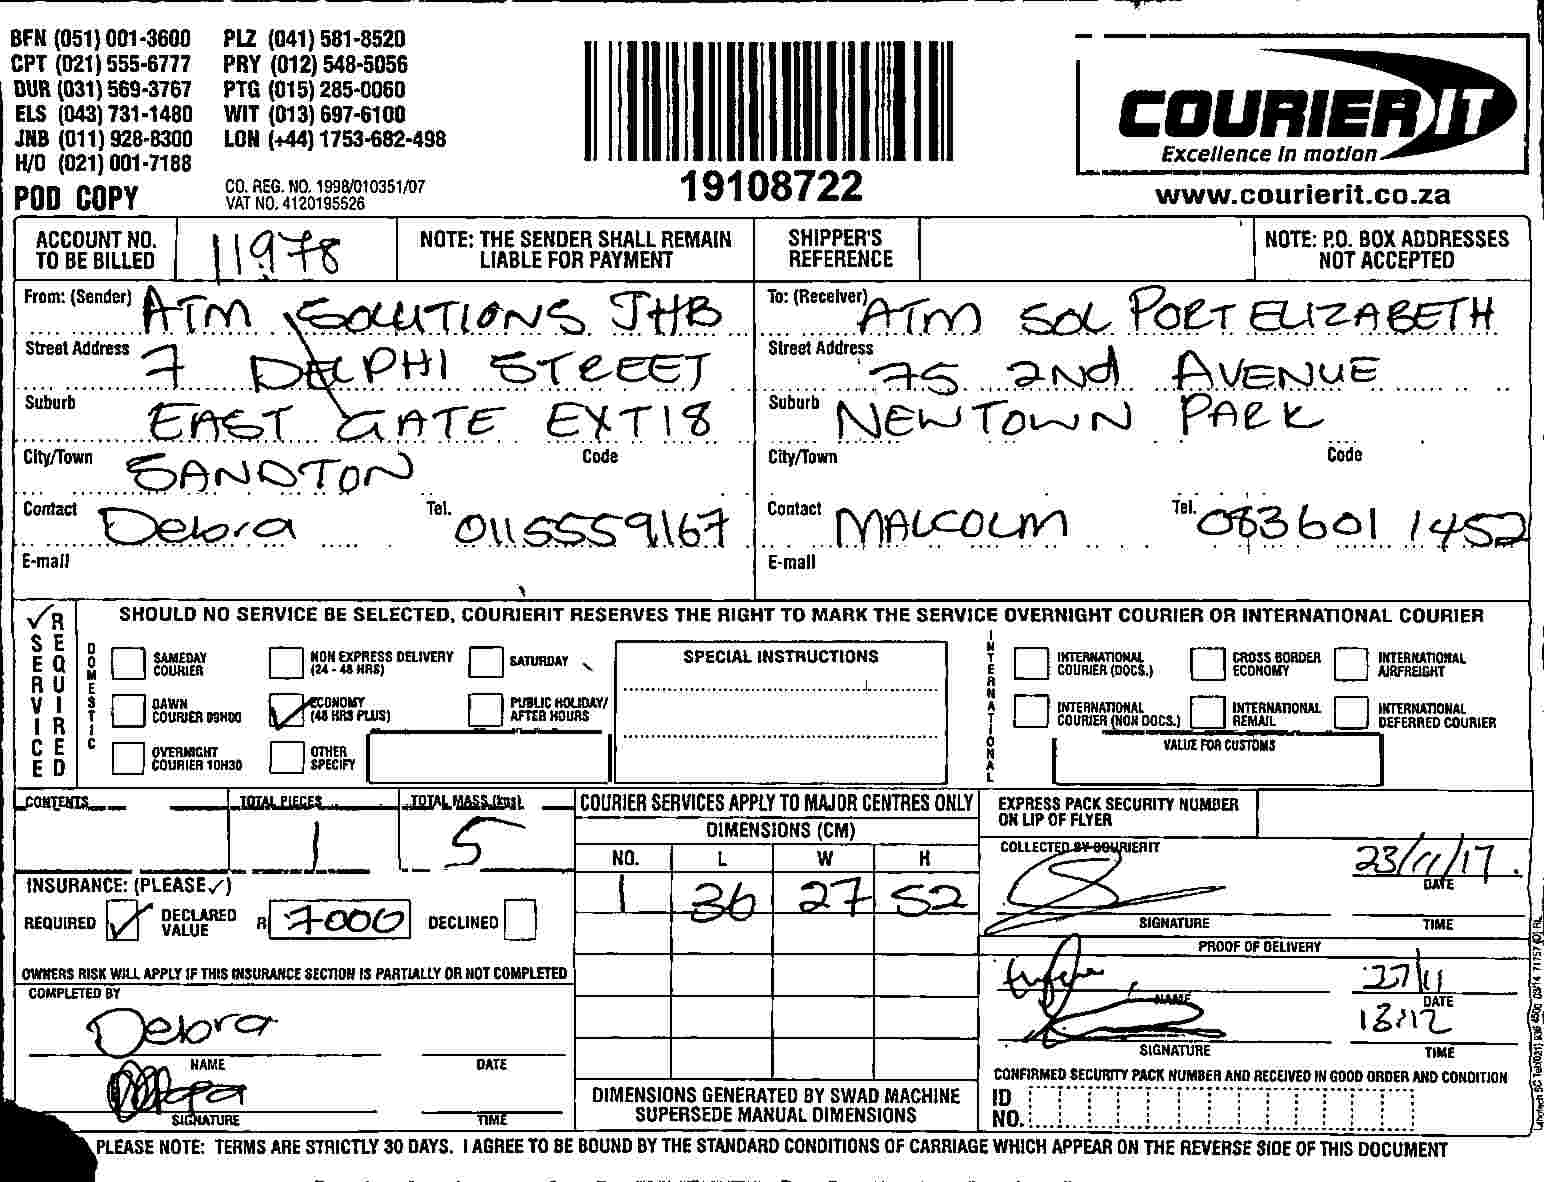 BFN (051) 001-3600 PLZ (041) 581-8520
CPT (021) 555-6777 PRY (012) 548-5056
DUR (031) 569-3767 PTG (015) 285-0060
ELS (043) 731-1480 WIT (013) 697-6100
JNB (011) 928-8300 LON (+44) 1753-682-498
H/O (021) 001-7188
POD COPY
CO. REG. NO. 1998/010351/07
VAT NO. 4120195526
19108722
COURIER IT
Excellence in motion
www.courierit.co.za
ACCOUNT NO. TO BE BILLED 11978
NOTE: THE SENDER SHALL REMAIN LIABLE FOR PAYMENT
SHIPPER'S REFERENCE
NOTE: P.O. BOX ADDRESSES NOT ACCEPTED
From: (Sender) ATM SOLUTIONS JHB
Street Address 7 DELPHI STREET
Suburb EAST GATE EXT18
City/Town SANDTON Code
Contact Debra Tel. 0115559167
E-mail
To: (Receiver) ATM SOL PORT ELIZABETH
Street Address 75 2Nd AVENUE
Suburb NEWTOWN PARK
City/Town Code
Contact MALCOLM Tel. 083 601 1452
E-mail
✓ SERVICE REQUIRED
SHOULD NO SERVICE BE SELECTED, COURIERIT RESERVES THE RIGHT TO MARK THE SERVICE OVERNIGHT COURIER OR INTERNATIONAL COURIER
DOMESTIC
SAMEDAY COURIER
NON EXPRESS DELIVERY (24 - 48 HRS)
SATURDAY
DAWN COURIER 09H00
✓ ECONOMY (48 HRS PLUS)
PUBLIC HOLIDAY/ AFTER HOURS
OVERNIGHT COURIER 10H30
OTHER SPECIFY
SPECIAL INSTRUCTIONS
INTERNATIONAL
INTERNATIONAL COURIER (DOCS.)
CROSS BORDER ECONOMY
INTERNATIONAL AIRFREIGHT
INTERNATIONAL COURIER (NON DOCS.)
INTERNATIONAL REMAIL
INTERNATIONAL DEFERRED COURIER
VALUE FOR CUSTOMS
CONTENTS
TOTAL PIECES 1
TOTAL MASS (kgs) 5
INSURANCE: (PLEASE ✓)
REQUIRED ✓ DECLARED VALUE R 7000 DECLINED
OWNERS RISK WILL APPLY IF THIS INSURANCE SECTION IS PARTIALLY OR NOT COMPLETED
COMPLETED BY
Debra
NAME DATE
SIGNATURE TIME
COURIER SERVICES APPLY TO MAJOR CENTRES ONLY
DIMENSIONS (CM)
NO. L W H
1 36 27 52
DIMENSIONS GENERATED BY SWAD MACHINE SUPERSEDE MANUAL DIMENSIONS
EXPRESS PACK SECURITY NUMBER ON LIP OF FLYER
COLLECTED BY COURIERIT
23/11/17
DATE
SIGNATURE TIME
PROOF OF DELIVERY
27/11
NAME DATE
13:12
SIGNATURE TIME
CONFIRMED SECURITY PACK NUMBER AND RECEIVED IN GOOD ORDER AND CONDITION
ID NO.
PLEASE NOTE: TERMS ARE STRICTLY 30 DAYS. I AGREE TO BE BOUND BY THE STANDARD CONDITIONS OF CARRIAGE WHICH APPEAR ON THE REVERSE SIDE OF THIS DOCUMENT